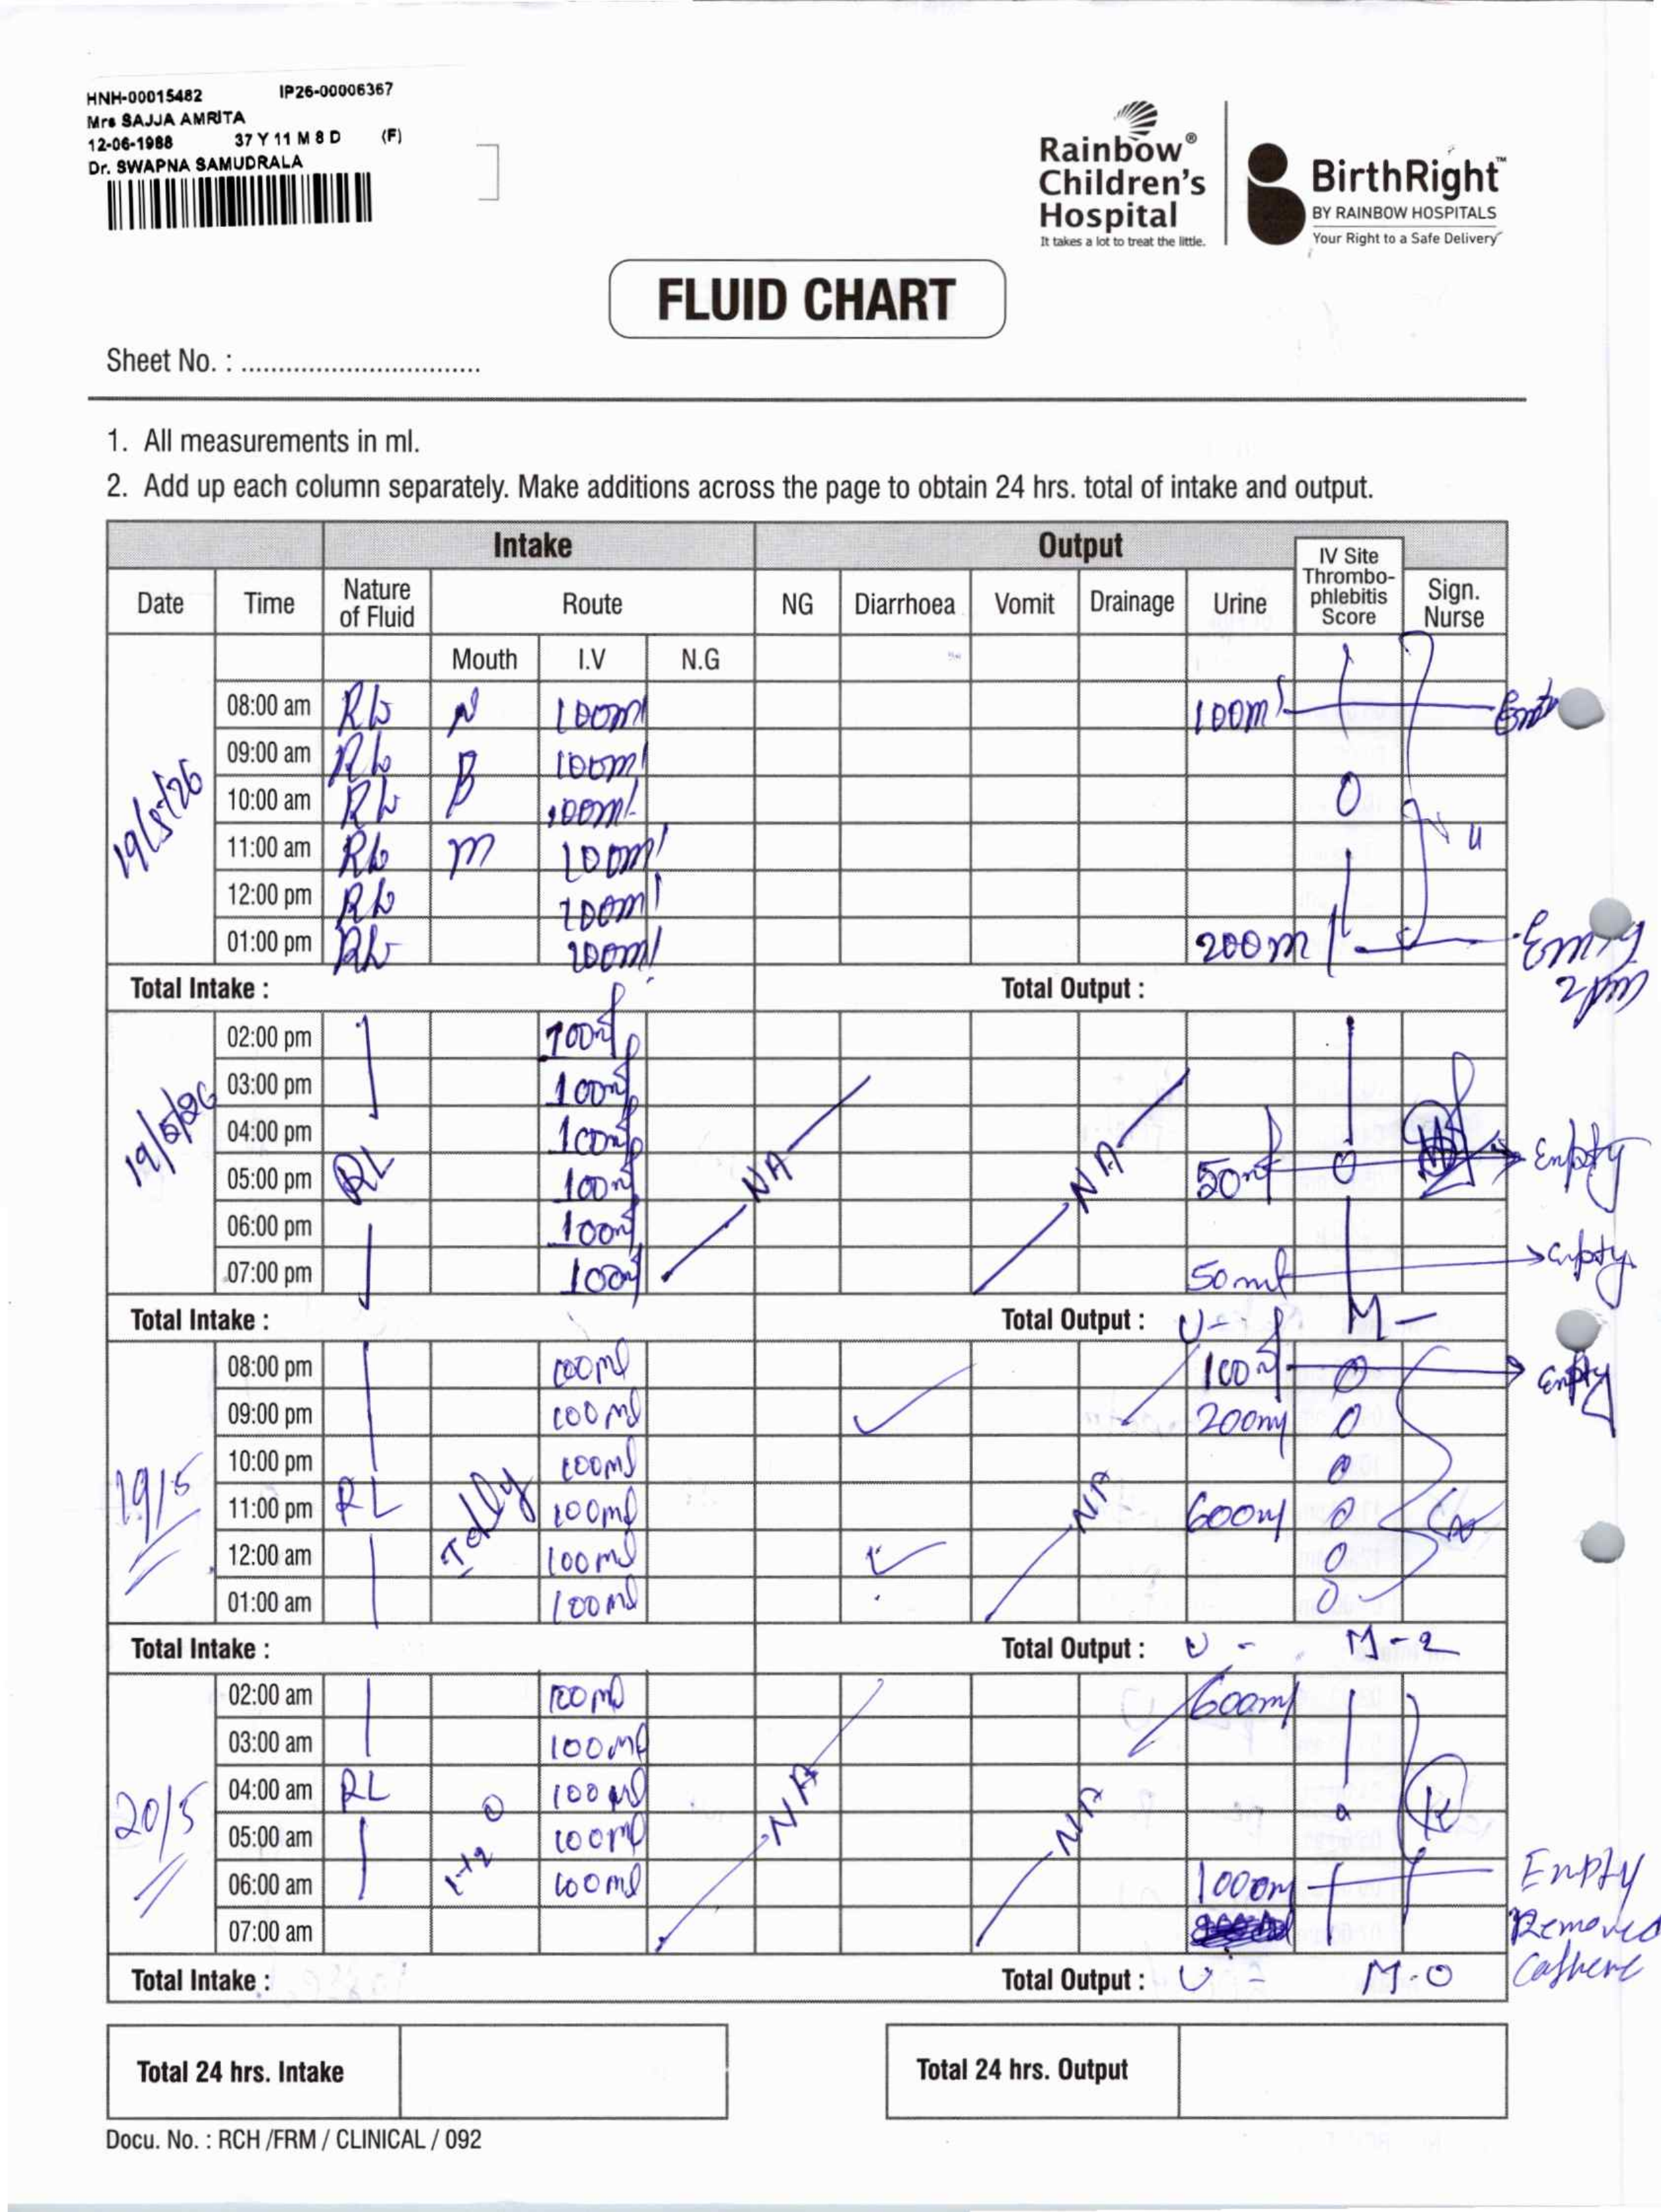 HNH-00015482 IP26-00006367
Mrs SAJJA AMRITA
12-06-1988 37 Y 11 M 8 D (F)
Dr. SWAPNA SAMUDRALA
Rainbow® Children's Hospital
It takes a lot to treat the little.
BirthRight™
BY RAINBOW HOSPITALS
Your Right to a Safe Delivery
FLUID CHART
Sheet No. : ................................
1. All measurements in ml.
2. Add up each column separately. Make additions across the page to obtain 24 hrs. total of intake and output.
Intake Output
Date Time Nature of Fluid Route NG Diarrhoea Vomit Drainage Urine IV Site Thrombo-phlebitis Score Sign. Nurse
Mouth I.V N.G
19/5/26
08:00 am RL N 100ml 100ml
09:00 am RL 100ml
10:00 am RL B 100ml 0
11:00 am RL m 100ml
12:00 pm RL 100ml
01:00 pm RL 100ml 200ml
Total Intake : Total Output :
19/5/26
02:00 pm 100ml
03:00 pm 100ml
04:00 pm 100ml
05:00 pm RL 100ml NA NA 50ml 0 Empty
06:00 pm 100ml
07:00 pm 100ml 50ml Empty
Total Intake : Total Output : U - M -
08:00 pm 100ml 100ml 0 Empty
09:00 pm 100ml 200ml 0
10:00 pm 100ml 0
19/5
11:00 pm RL Idly 100ml NA 600ml 0
12:00 am 100ml 0
01:00 am 100ml 0
Total Intake : Total Output : U - M - 2
02:00 am 100ml 600ml
03:00 am 100ml
04:00 am RL 100ml NA NA
20/5
05:00 am 100ml
06:00 am 100ml 1000m Empty
07:00 am Removed
Total Intake : Total Output : U - M - 0
Total 24 hrs. Intake Total 24 hrs. Output
Docu. No. : RCH /FRM / CLINICAL / 092